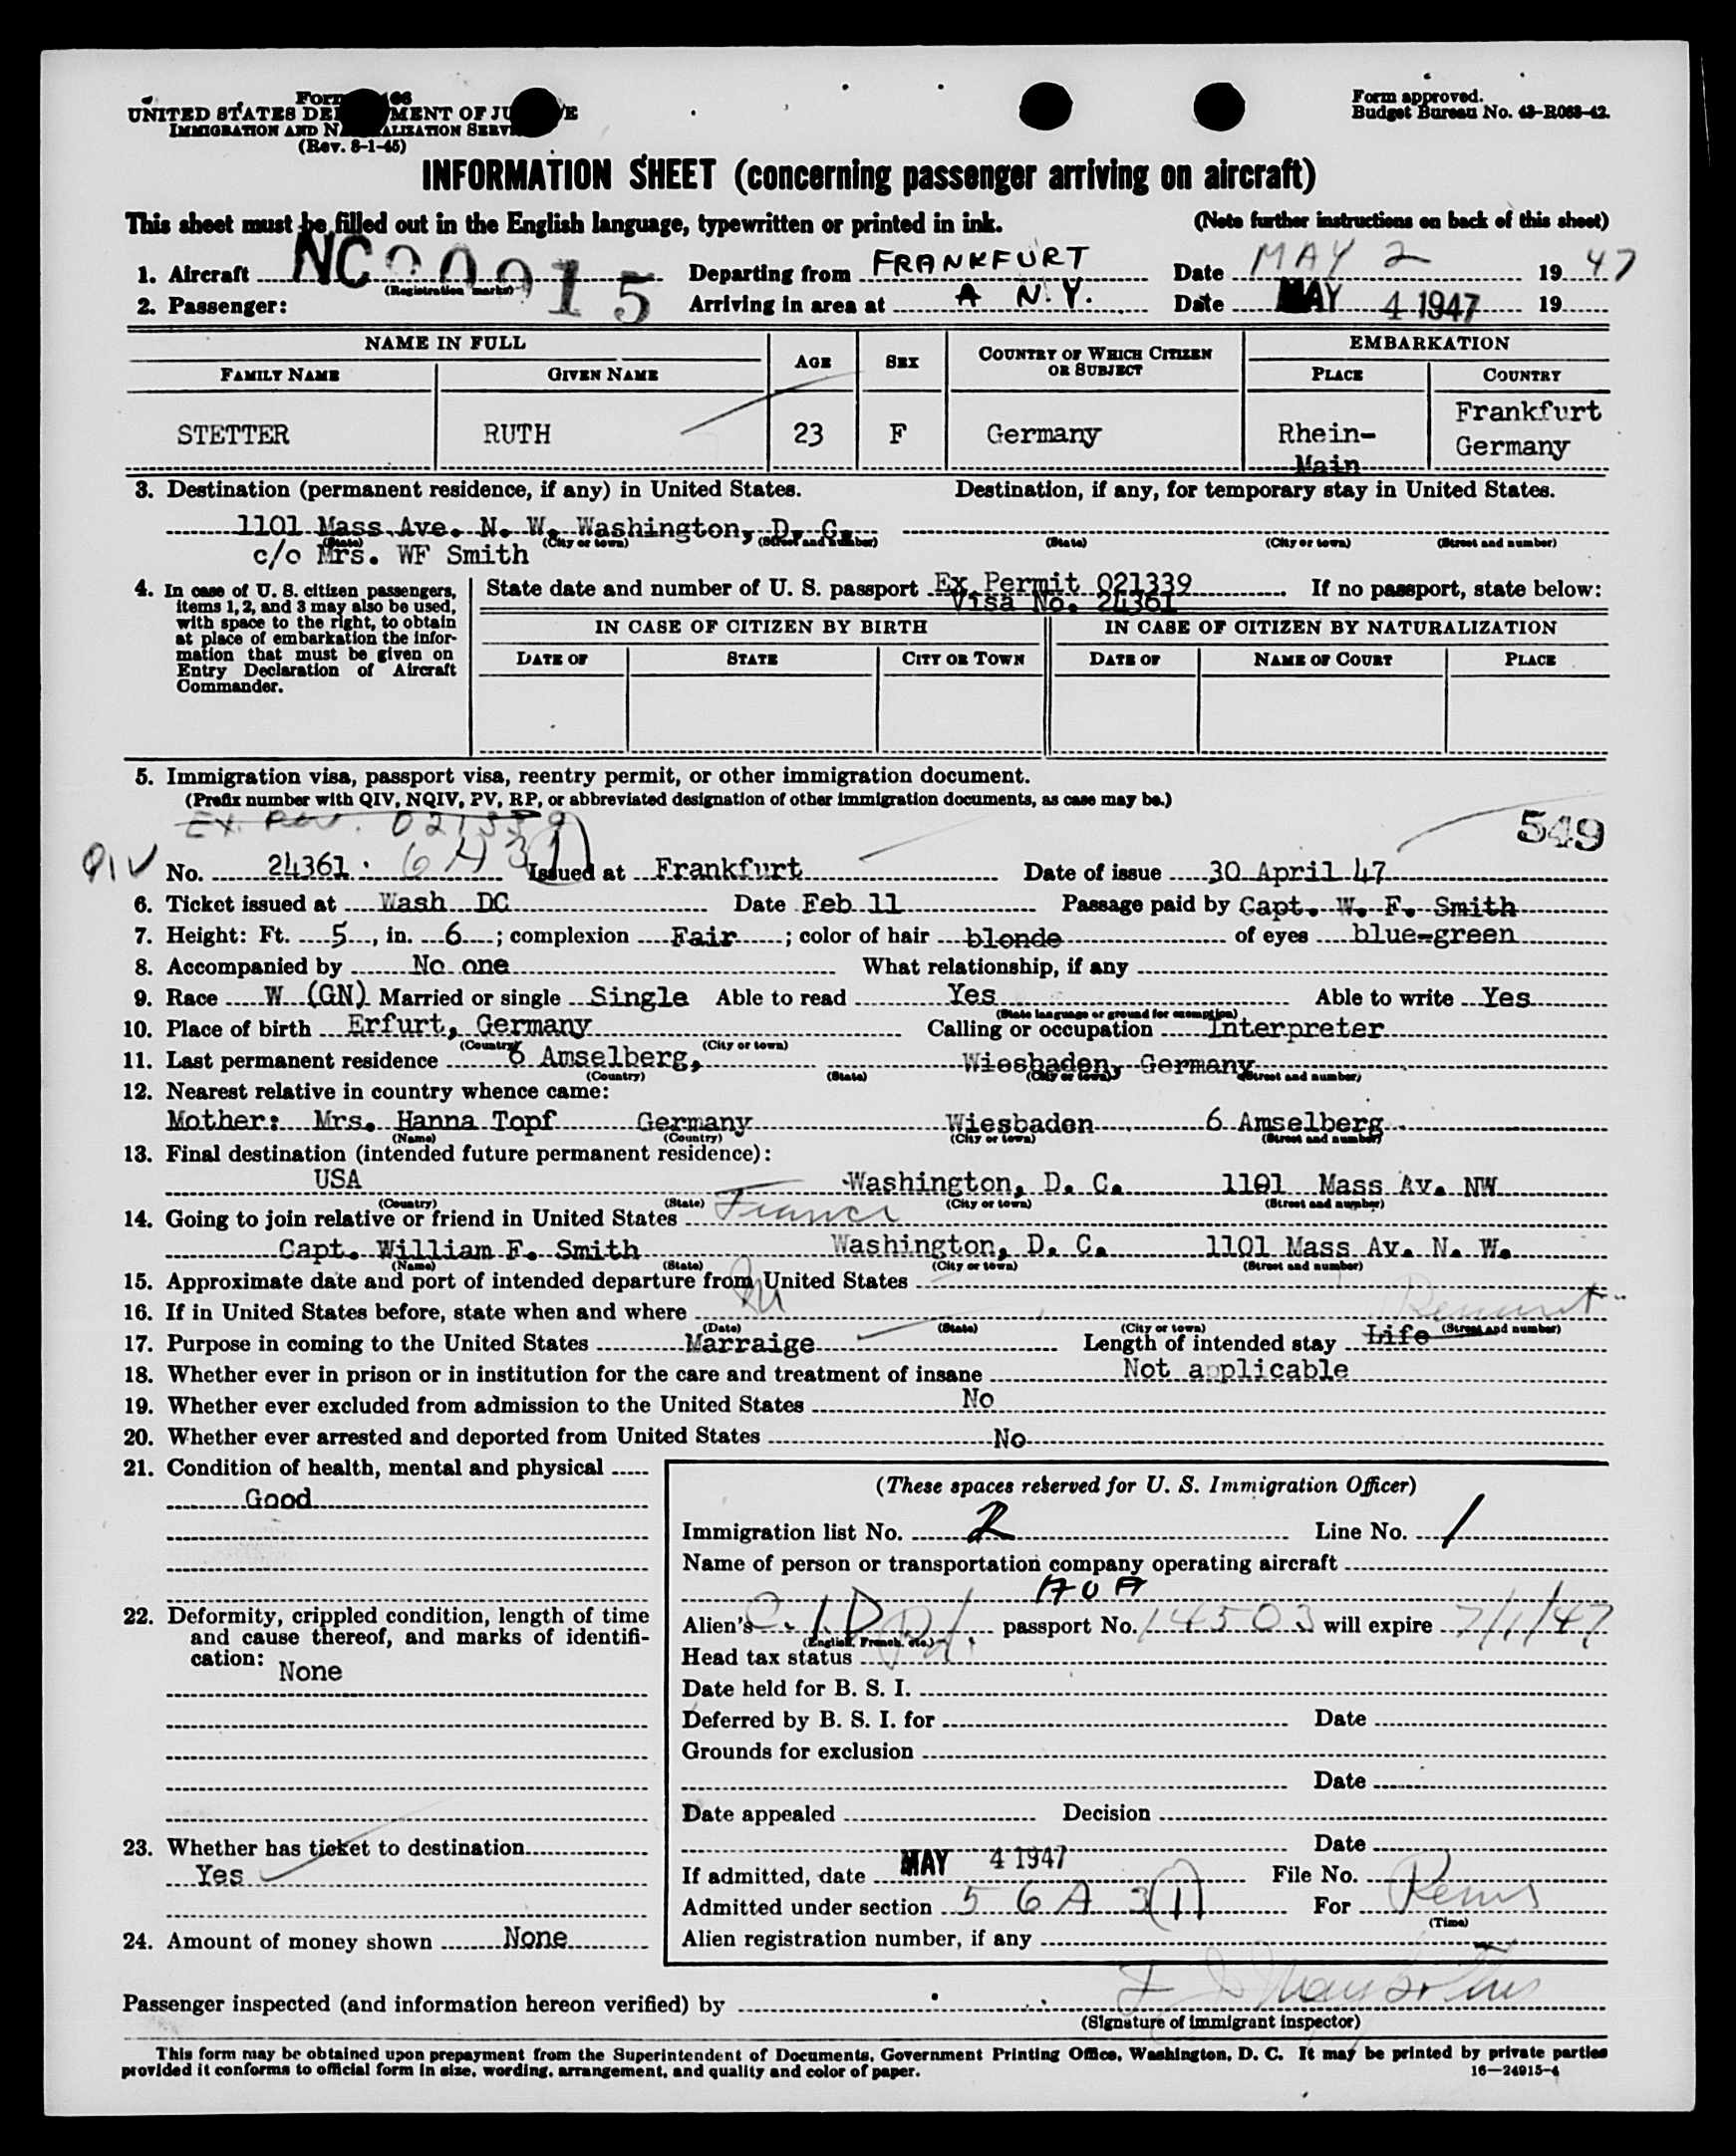 UNITED STATES DE MENT OF JU E
IMMIGRATION AND N ALIZATION SERV
(Rev. 8-1-45)
Form approved.
Budget Bureau No. 43-R063-42.
INFORMATION SHEET (concerning passenger arriving on aircraft)
This sheet must be filled out in the English language, typewritten or printed in ink. (Note further instructions on back of this sheet)
1. Aircraft NC 90915 (Registration marks) Departing from FRANKFURT Date MAY 2 19 47
2. Passenger: Arriving in area at A N.Y. Date MAY 4 1947 19
NAME IN FULL
FAMILY NAME GIVEN NAME AGE SEX COUNTRY OF WHICH CITIZEN OR SUBJECT EMBARKATION PLACE COUNTRY
STETTER RUTH 23 F Germany Rhein-Main Frankfurt Germany
3. Destination (permanent residence, if any) in United States. Destination, if any, for temporary stay in United States.
1101 Mass Ave. N. W. Washington, D. C.
(State) (City or town) (Street and number) (State) (City or town) (Street and number)
c/o Mrs. WF Smith
4. In case of U. S. citizen passengers, items 1, 2, and 3 may also be used, with space to the right, to obtain at place of embarkation the information that must be given on Entry Declaration of Aircraft Commander.
State date and number of U. S. passport Ex Permit 021339 If no passport, state below:
Visa No. 24361
IN CASE OF CITIZEN BY BIRTH IN CASE OF CITIZEN BY NATURALIZATION
DATE OF STATE CITY OR TOWN DATE OF NAME OF COURT PLACE
5. Immigration visa, passport visa, reentry permit, or other immigration document.
(Prefix number with QIV, NQIV, PV, RP, or abbreviated designation of other immigration documents, as case may be.)
Ex. Per. 021339
549
QIV No. 24361 6 A 3(1) Issued at Frankfurt Date of issue 30 April 47
6. Ticket issued at Wash DC Date Feb 11 Passage paid by Capt. W. F. Smith
7. Height: Ft. 5, in. 6; complexion Fair; color of hair blonde of eyes blue-green
8. Accompanied by No one What relationship, if any
9. Race W (GN) Married or single Single Able to read Yes Able to write Yes
(State language or ground for exemption)
10. Place of birth Erfurt, Germany Calling or occupation Interpreter
(Country) (City or town)
11. Last permanent residence 6 Amselberg, Wiesbaden, Germany
(Country) (State) (City or town) (Street and number)
12. Nearest relative in country whence came:
Mother: Mrs. Hanna Topf Germany Wiesbaden 6 Amselberg
(Name) (Country) (City or town) (Street and number)
13. Final destination (intended future permanent residence):
USA Washington, D. C. 1101 Mass Av. NW
(Country) (State) (City or town) (Street and number)
14. Going to join relative or friend in United States
Capt. William F. Smith Washington, D. C. 1101 Mass Av. N. W.
(Name) (State) (City or town) (Street and number)
15. Approximate date and port of intended departure from United States
16. If in United States before, state when and where
(Date) (State) (City or town) (Street and number)
17. Purpose in coming to the United States Marraige Length of intended stay Life
18. Whether ever in prison or in institution for the care and treatment of insane Not applicable
19. Whether ever excluded from admission to the United States No
20. Whether ever arrested and deported from United States No
21. Condition of health, mental and physical
Good
22. Deformity, crippled condition, length of time and cause thereof, and marks of identification:
None
23. Whether has ticket to destination
Yes
24. Amount of money shown None
(These spaces reserved for U. S. Immigration Officer)
Immigration list No. 2 Line No. 1
Name of person or transportation company operating aircraft
AOA
Alien's passport No. 14503 will expire 7/1/47
(English, French, etc.)
Head tax status
Date held for B. S. I.
Deferred by B. S. I. for Date
Grounds for exclusion
Date
Date appealed Decision
Date
If admitted, date MAY 4 1947 File No.
Admitted under section 5 6 A 3(1) For
(Time)
Alien registration number, if any
Passenger inspected (and information hereon verified) by
(Signature of immigrant inspector)
This form may be obtained upon prepayment from the Superintendent of Documents, Government Printing Office, Washington, D. C. It may be printed by private parties
provided it conforms to official form in size, wording, arrangement, and quality and color of paper. 16—24915-4